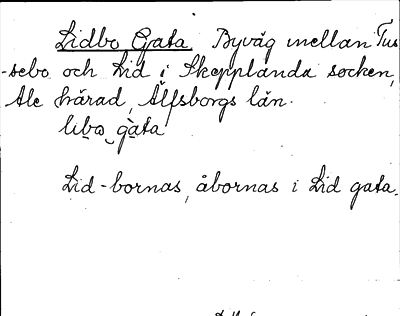 Lidbo Gata Byväg mellan Tus-
-sebo och Lid i Skepplanda socken,
Ale härad, Älfsborgs län.
liba gata
Lid-bornas, åbornas i Lid gata.